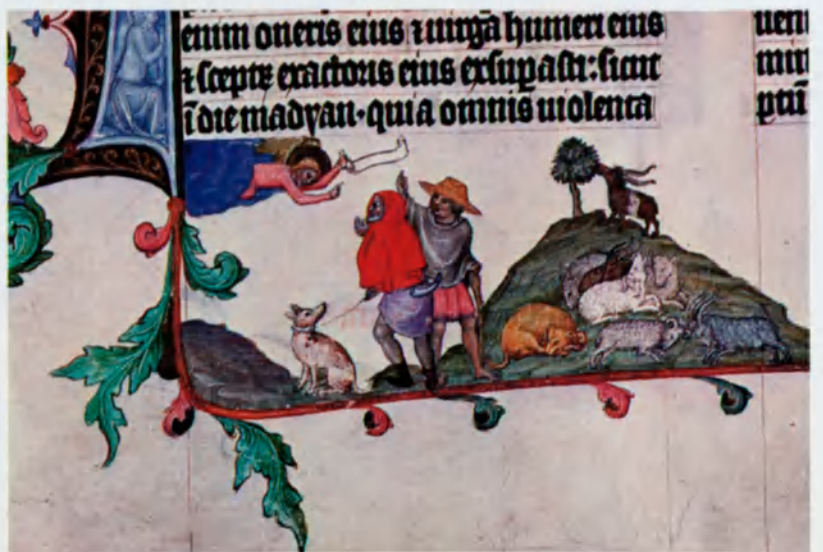 enim oneris eius ⁊ uirga humeri eius
⁊ sceptꝝ exactoris eius exsuꝑasti: sicut
ī die madyan · quia omnis uiolenta
ptū